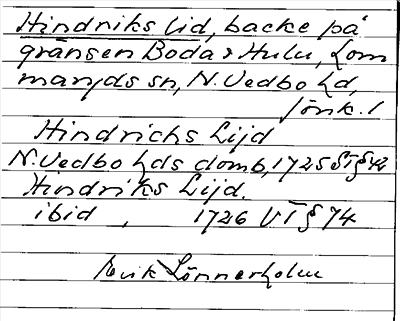 Hindriks lid, backe på
gränsen Boda & Hulu, Lom
maryds sn, N. Vedbo hd,
Jönk. l
Hindrichs Lijd
N. Vedbo hds domb, 1725 § 42
Hindriks Lijd.
ibid, 1726 VT § 74
Erik Lönnerholm